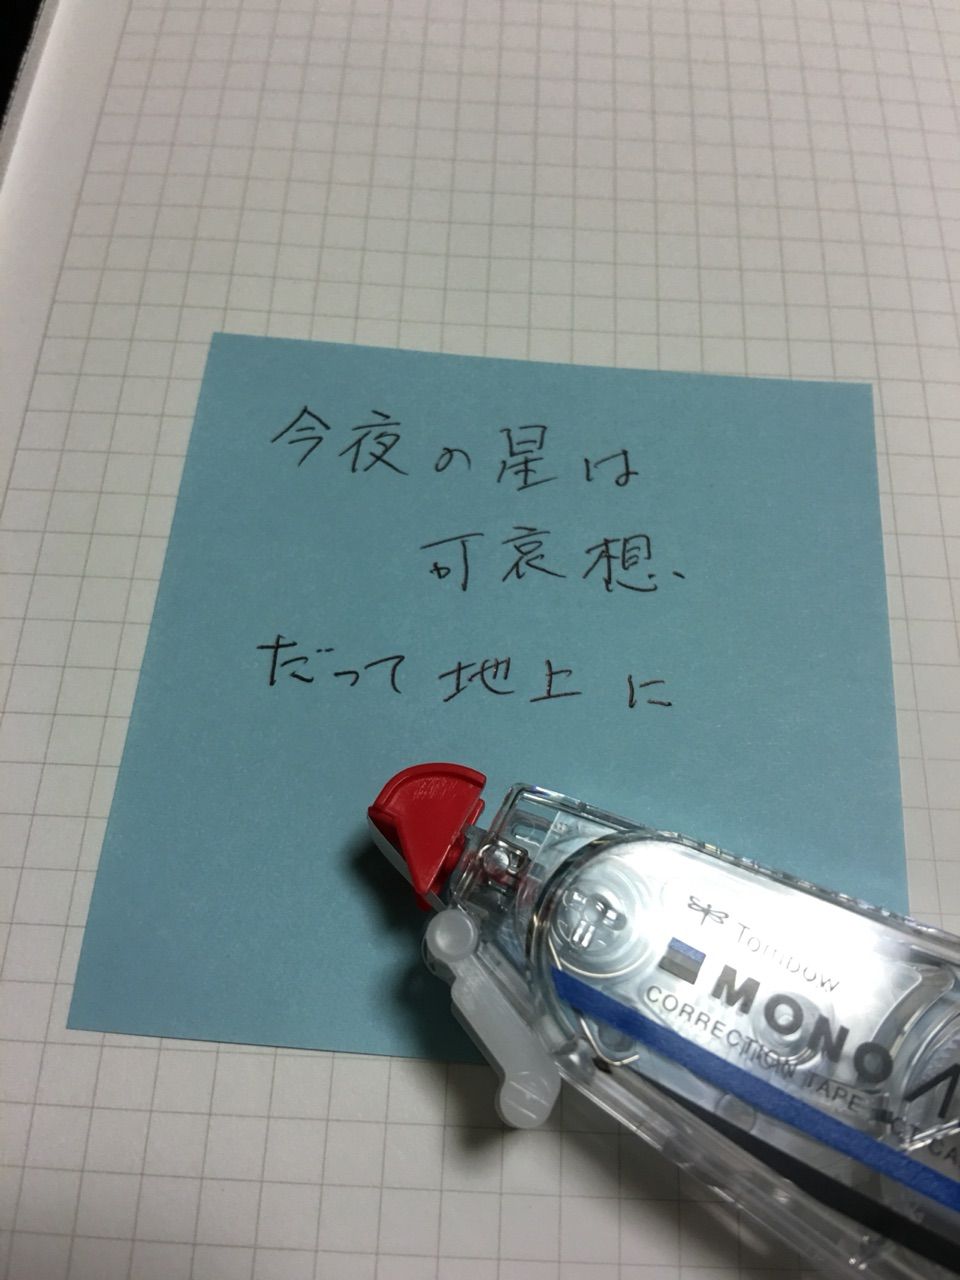 今夜の星は
可哀想、
だって地上に
Tombow
MONO
CORRECTION TAPE